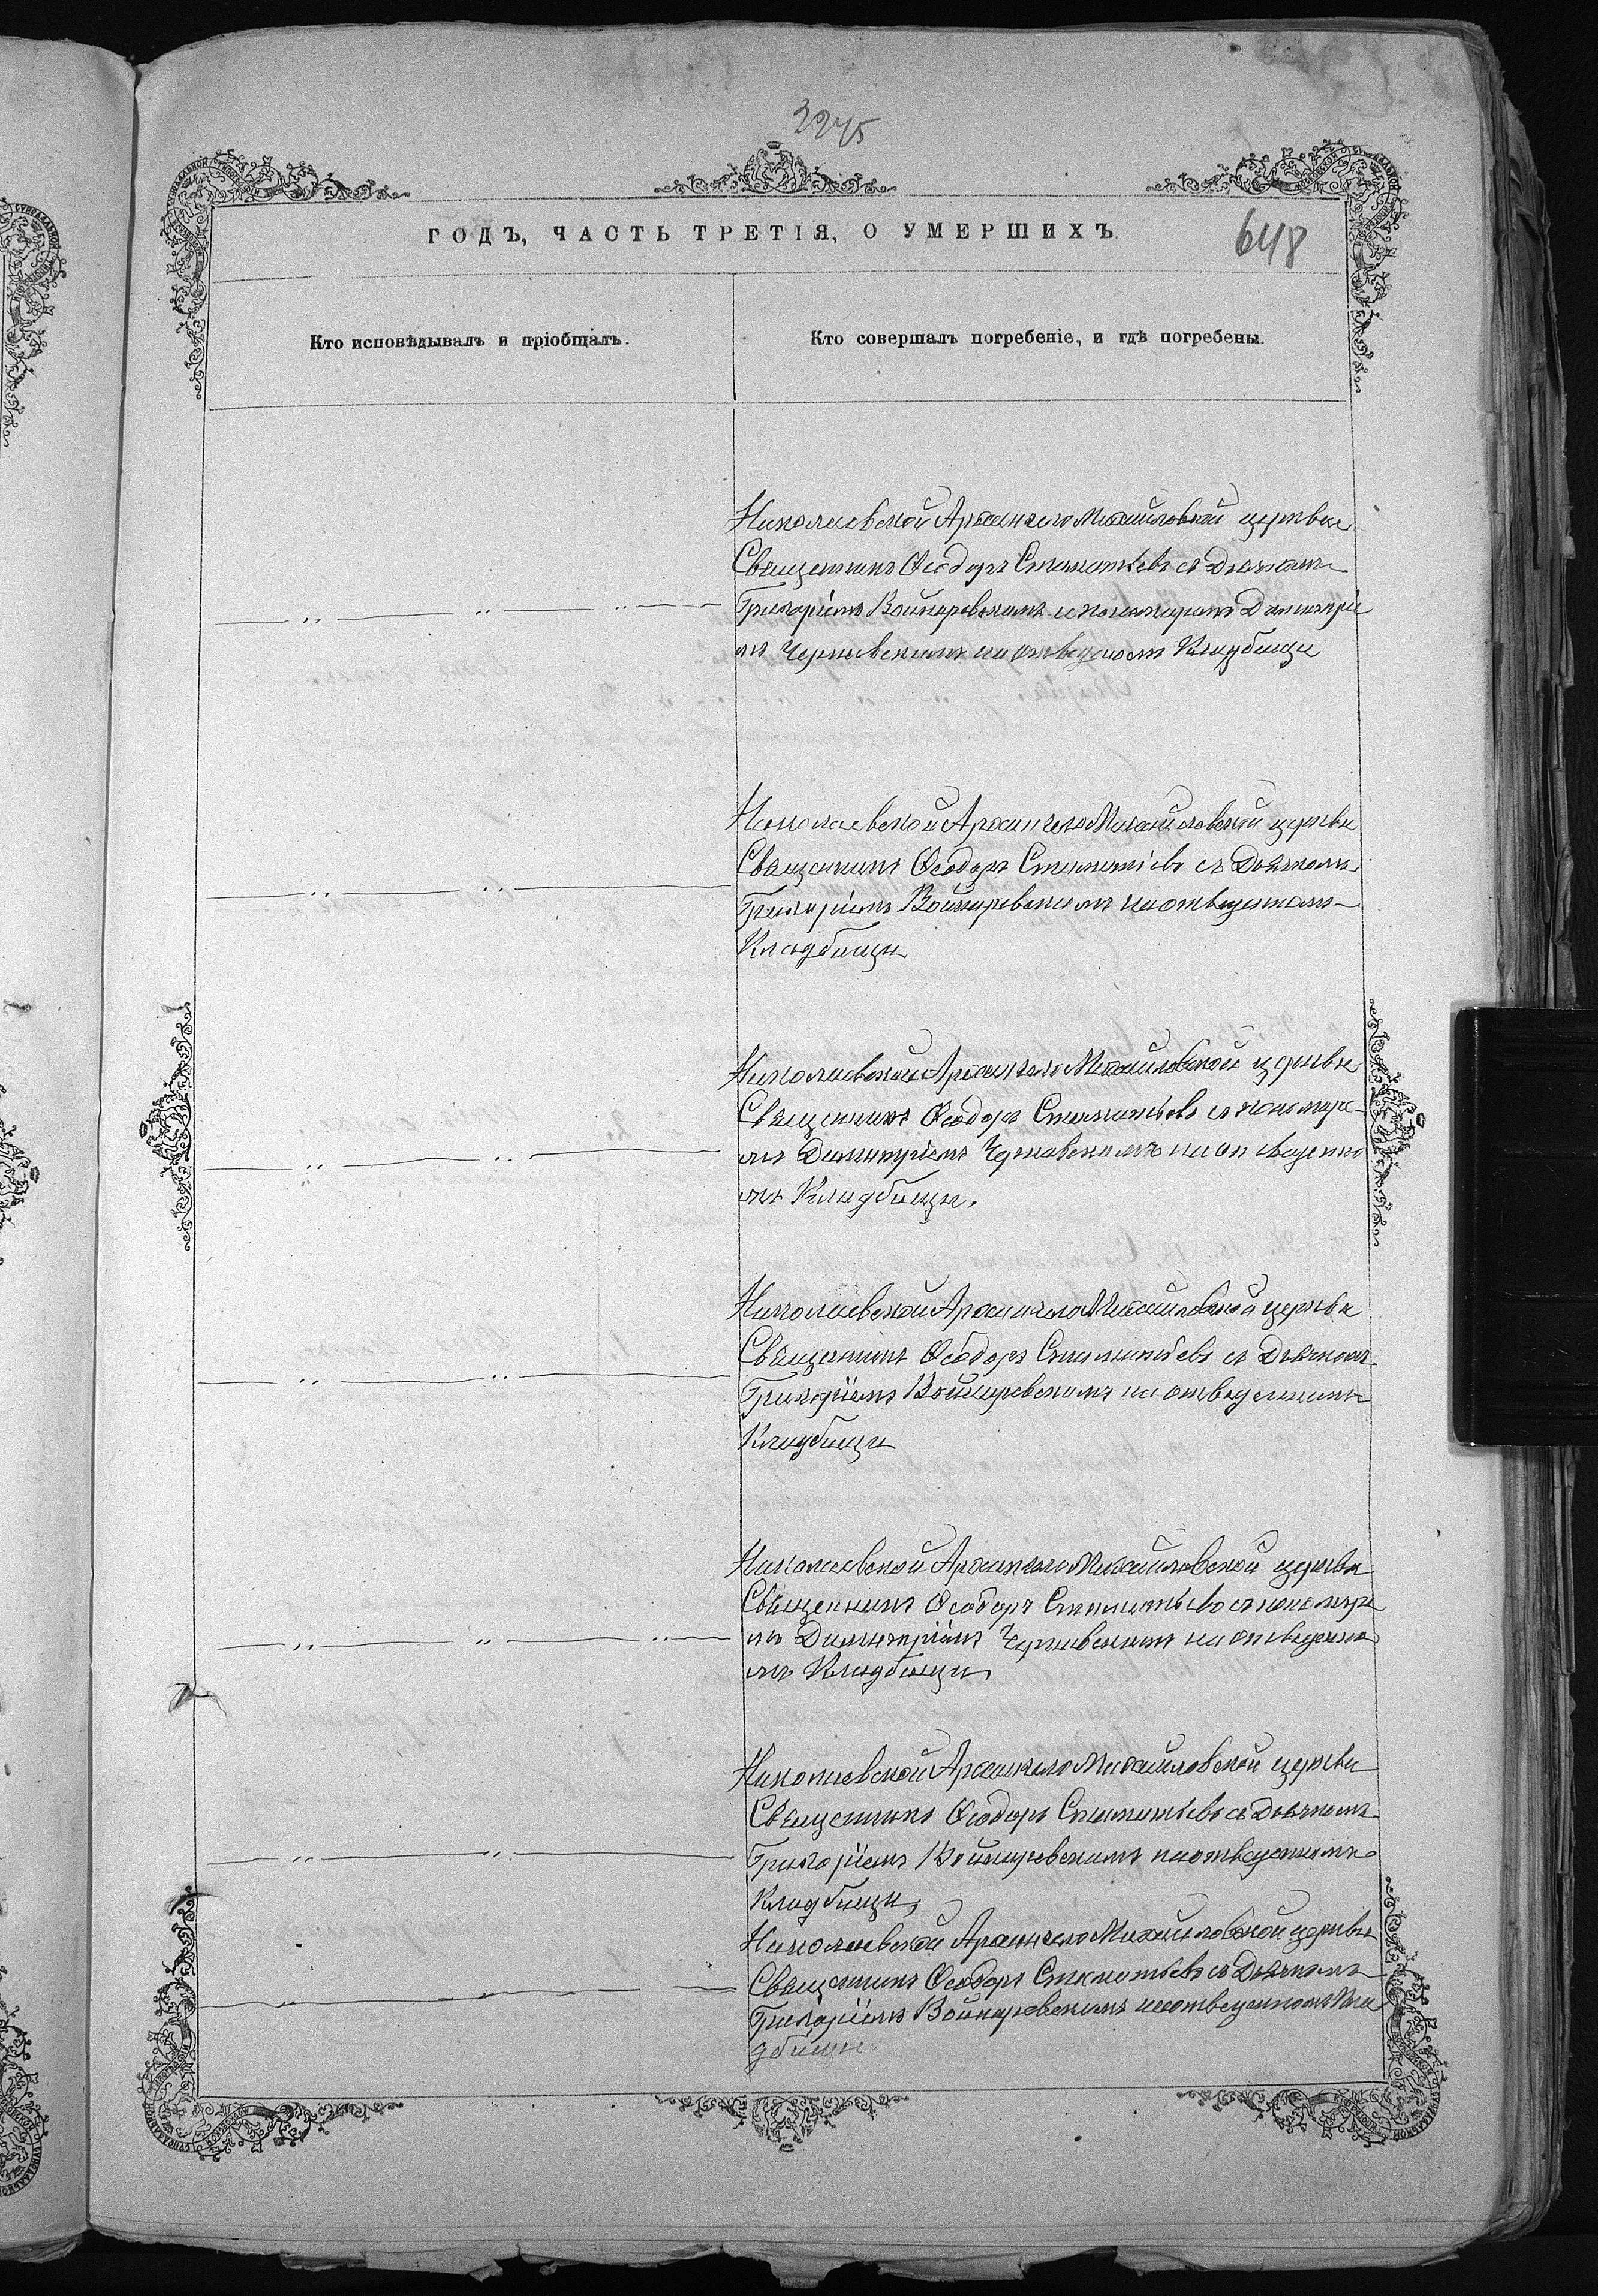 2245
648
ГОДЪ, ЧАСТЬ ТРЕТІЯ, О УМЕРШИХЪ.
Кто исповѣдывалъ и пріобщалъ.
Кто совершалъ погребеніе, и гдѣ погребены.
Николаевской Архангело Михайловской церкви
Священникъ Ѳеодоръ Стаматьевъ съ Дьячкомъ
Григоріемъ Войнаровскимъ и пономаремъ Димитріе
мъ Чернявскимъ на отведеномъ Кладбищи
Николаевской Архангело Михайловской церкви
Священникъ Ѳеодоръ Стаматіевъ съ Дьячкомъ
Григоріемъ Войнаровскимъ на отведеномъ
Кладбищи
Николаевской Архангело Михайловской церкви
Священникъ Ѳеодоръ Стаматьевъ съ пономаре-
мъ Димитріемъ Чернявскимъ на отведенно
мъ Кладбищи.
Николаевской Архангело Михайловской церкви
Священникъ Ѳеодоръ Стаматіевъ съ Дьячкомъ
Григоріемъ Войнаровскимъ на отведенномъ
Кладбищи
Николаевской Архангело Михайловской церкви
Священникъ Ѳеодоръ Стаматьевъ съ пономаре
мъ Димитріемъ Чернявскимъ на отведенно
мъ Кладбищи
Николаевской Архангело Михайловской церкви
Священникъ Ѳеодоръ Стаматьевъ съ Дьячкомъ
Григоріемъ Войнаровскимъ на отведенномъ
Кладбищи,
Николаевской Архангело Михайловской церкви
Священникъ Ѳеодоръ Стаматьевъ съ Дьячкомъ
Григоріемъ Войнаровскимъ на отведенномъ Кла
дбищи.